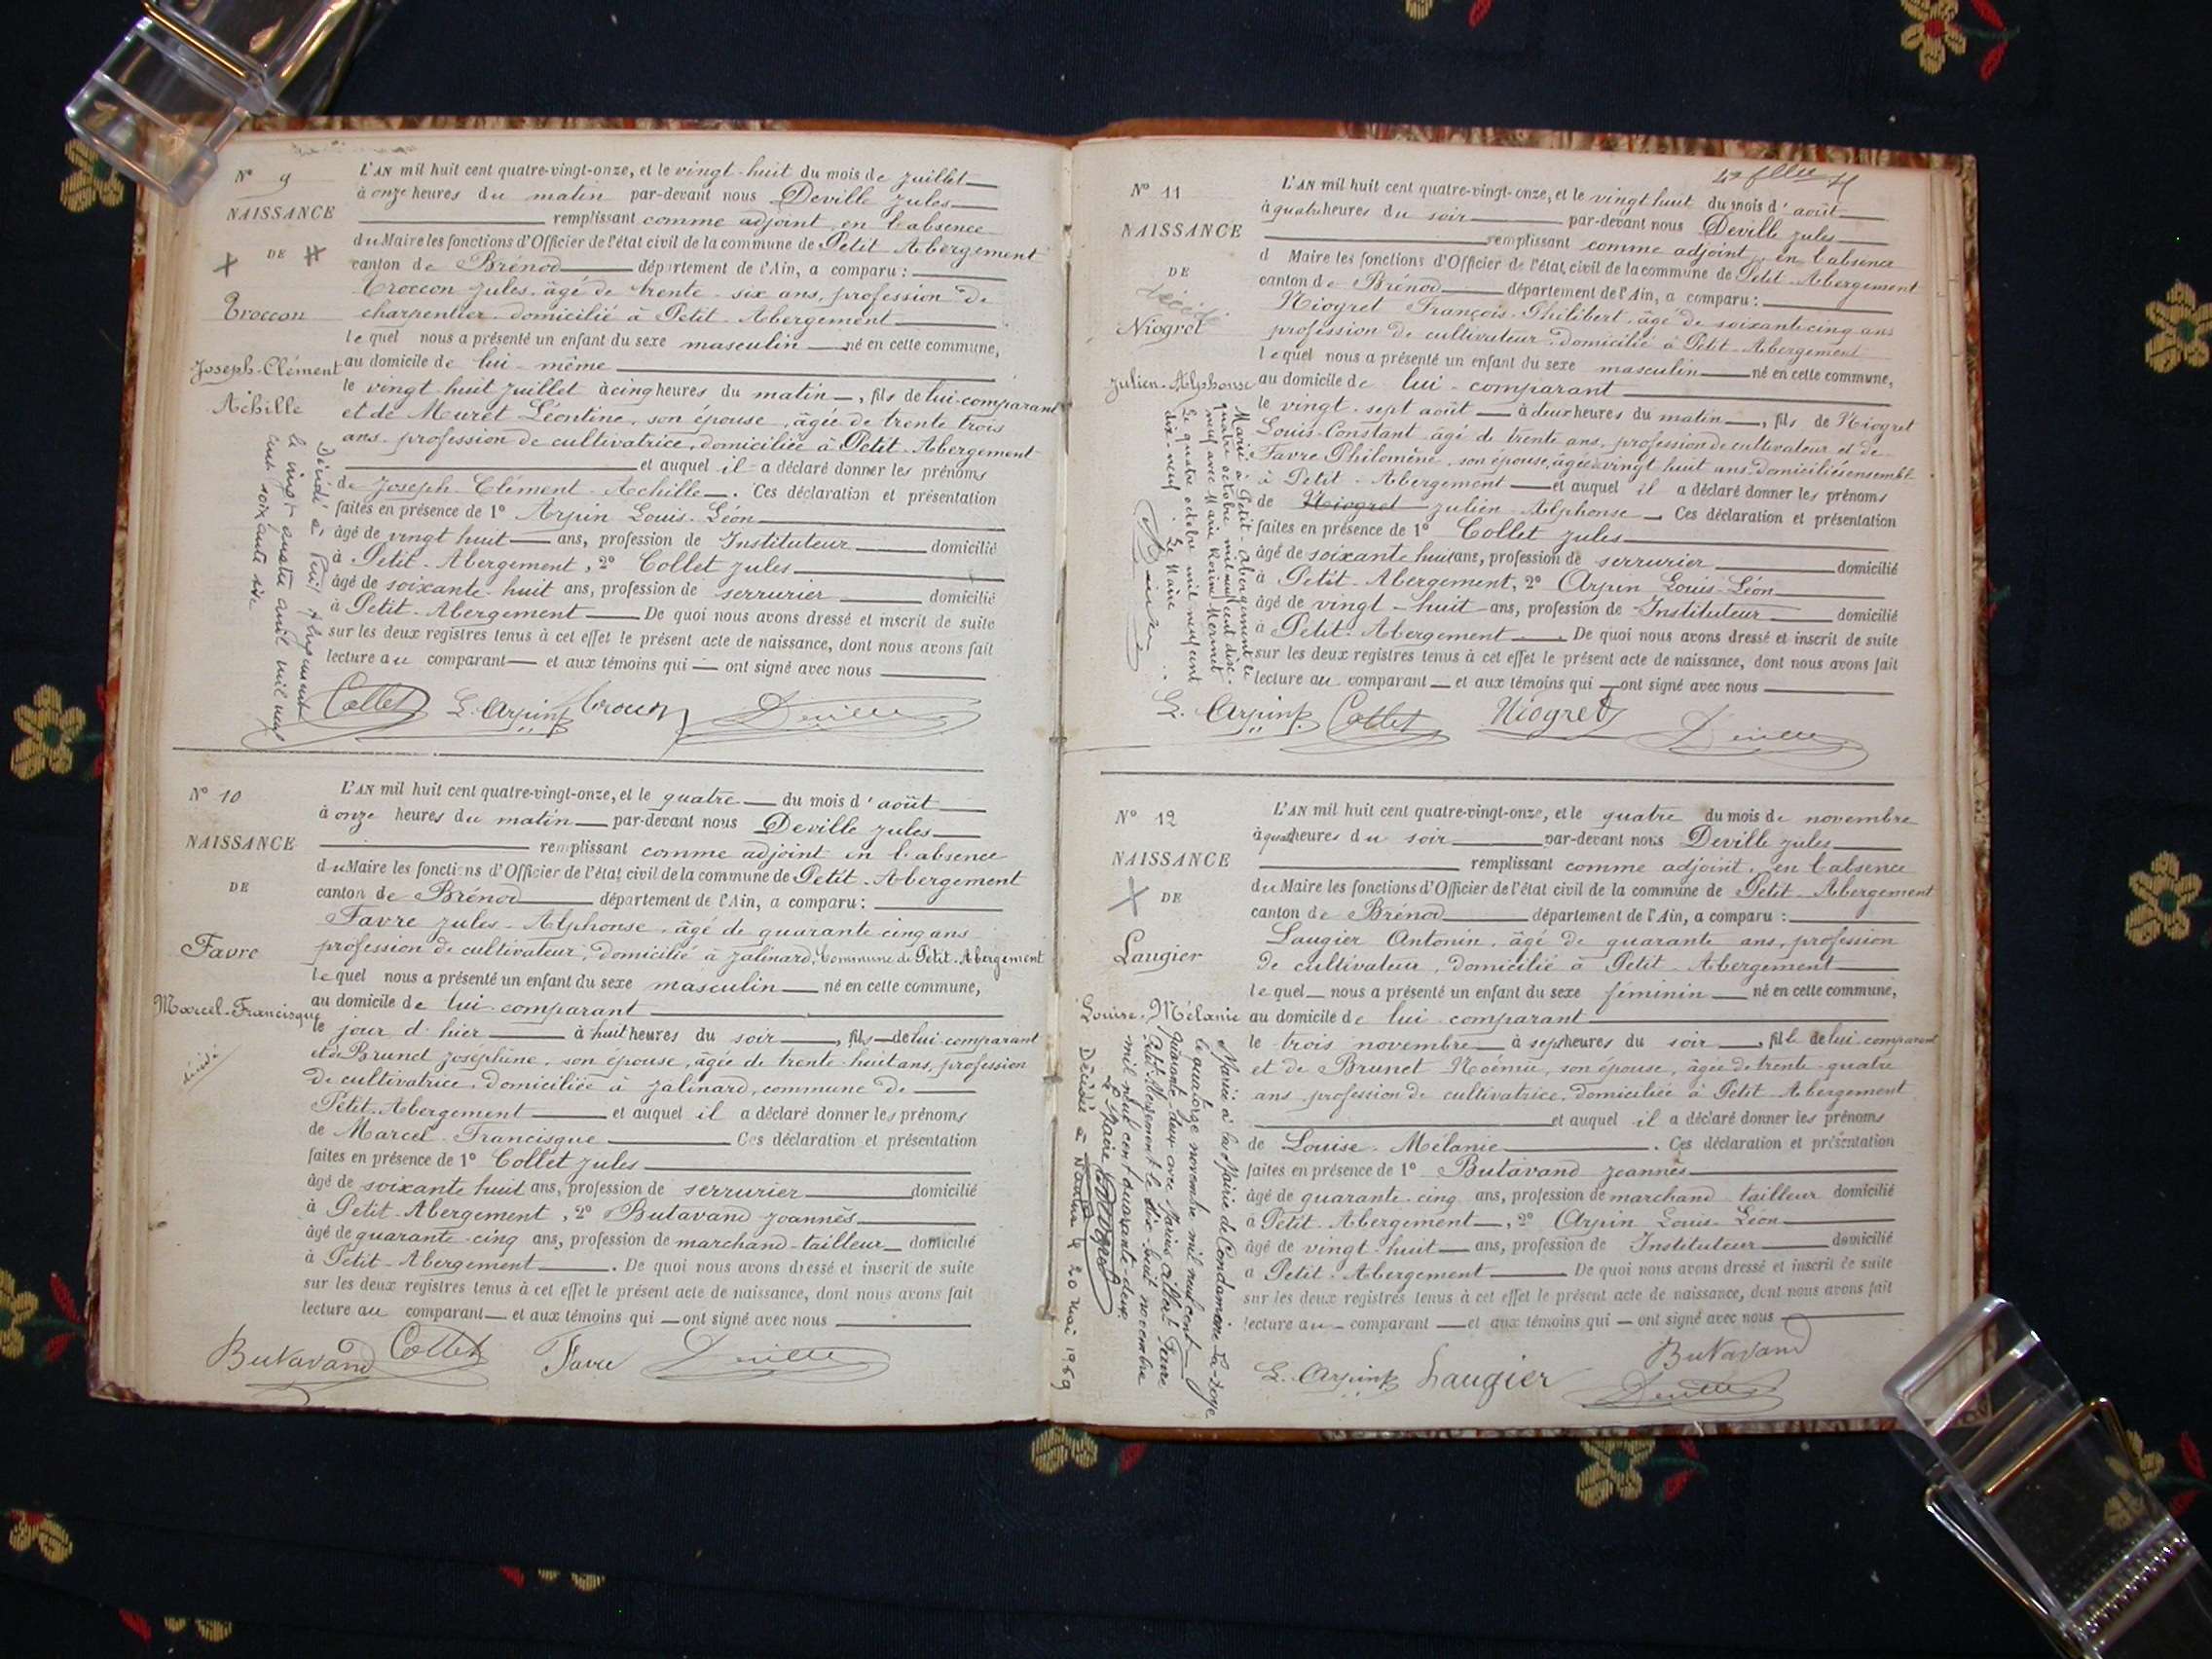 N° 9
NAISSANCE
DE
Troccon
Joseph-Clément
Achille
Décédé à Petit Abergement
le vingt quatre avril mil neuf
cent soixante six
L'AN mil huit cent quatre-vingt-onze, et le vingt-huit du mois de juillet
à onze heures du matin par-devant nous Deville Jules
remplissant comme adjoint en l'absence
du Maire les fonctions d'Officier de l'état civil de la commune de Petit-Abergement
canton de Brénod département de l'Ain, a comparu :
Troccon Jules, âgé de trente-six ans, profession de
charpentier, domicilié à Petit-Abergement
lequel nous a présenté un enfant du sexe masculin né en cette commune,
au domicile de lui-même
le vingt huit juillet à cinq heures du matin, fils de lui-comparant
et de Muret Léontine, son épouse, âgée de trente trois
ans, profession de cultivatrice, domiciliée à Petit-Abergement
et auquel il a déclaré donner les prénoms
de Joseph-Clément-Achille. Ces déclaration et présentation
faites en présence de 1° Arpin Louis-Léon
âgé de vingt huit ans, profession de Instituteur domicilié
à Petit-Abergement, 2° Collet Jules
âgé de soixante-huit ans, profession de serrurier domicilié
à Petit-Abergement De quoi nous avons dressé et inscrit de suite
sur les deux registres tenus à cet effet le présent acte de naissance, dont nous avons fait
lecture au comparant et aux témoins qui ont signé avec nous
Collet L. Arpin Troccon Deville
N° 10
NAISSANCE
DE
Favre
Marcel-Francisque
décédé
L'AN mil huit cent quatre-vingt-onze, et le quatre du mois d'août
à onze heures du matin par-devant nous Deville Jules
remplissant comme adjoint en l'absence
du Maire les fonctions d'Officier de l'état civil de la commune de Petit-Abergement
canton de Brénod département de l'Ain, a comparu :
Favre Jules-Alphonse, âgé de quarante cinq ans
profession de cultivateur, domicilié à Jalinard, Commune de Petit-Abergement
lequel nous a présenté un enfant du sexe masculin né en cette commune,
au domicile de lui comparant
le jour d'hier à huit heures du soir, fils de lui comparant
et de Brunet Joséphine, son épouse, âgée de trente-huit ans, profession
de cultivatrice, domiciliée à Jalinard, commune de
Petit-Abergement et auquel il a déclaré donner les prénoms
de Marcel-Francisque Ces déclaration et présentation
faites en présence de 1° Collet Jules
âgé de soixante huit ans, profession de serrurier domicilié
à Petit-Abergement, 2° Butavand Joannès
âgé de quarante-cinq ans, profession de marchand-tailleur domicilié
à Petit-Abergement. De quoi nous avons dressé et inscrit de suite
sur les deux registres tenus à cet effet le présent acte de naissance, dont nous avons fait
lecture au comparant et aux témoins qui ont signé avec nous
Butavand Collet Favre Deville
N° 11
NAISSANCE
DE
décédé
Niogret
Julien-Alphonse
Marié à Petit-Abergement le
quatre octobre mil neuf cent dix-
neuf avec Marie Rosine Mermet
Le quatre octobre mil neuf cent
dix-neuf. Le Maire
L'AN mil huit cent quatre-vingt-onze, et le vingt huit du mois d'août
à quatre heures du soir par-devant nous Deville Jules
remplissant comme adjoint, en l'absence
d Maire les fonctions d'Officier de l'état civil de la commune de Petit-Abergement
canton de Brénod département de l'Ain, a comparu :
Niogret François-Philibert, âgé de soixante cinq ans
profession de cultivateur, domicilié à Petit-Abergement
lequel nous a présenté un enfant du sexe masculin né en cette commune,
au domicile de lui-comparant
le vingt-sept août à deux heures du matin, fils de Niogret
Louis-Constant âgé de trente ans, profession de cultivateur et de
Favre Philomène, son épouse, âgée de vingt huit ans domiciliés ensemble
à Petit-Abergement et auquel il a déclaré donner les prénoms
de Niogret Julien-Alphonse. Ces déclaration et présentation
faites en présence de 1° Collet Jules
âgé de soixante huit ans, profession de serrurier domicilié
à Petit-Abergement, 2° Arpin Louis-Léon
âgé de vingt-huit ans, profession de Instituteur domicilié
à Petit-Abergement. De quoi nous avons dressé et inscrit de suite
sur les deux registres tenus à cet effet le présent acte de naissance, dont nous avons fait
lecture au comparant et aux témoins qui ont signé avec nous
L. Arpin Collet Niogret Deville
N° 12
NAISSANCE
DE
Laugier
Louise-Mélanie
Mariée à la Mairie de Condamine-la-Doye
le quatorze novembre mil neuf cent
quarante-deux avec Marius Albert Favre
Petit-Abergement le dix-huit novembre
mil neuf cent quarante-deux.
Le Maire
Décédée à Nantua le 20 mai 1969
L'AN mil huit cent quatre-vingt-onze, et le quatre du mois de novembre
à quatre heures du soir par-devant nous Deville Jules
remplissant comme adjoint, en l'absence
du Maire les fonctions d'Officier de l'état civil de la commune de Petit-Abergement
canton de Brénod département de l'Ain, a comparu :
Laugier Antonin, âgé de quarante ans, profession
de cultivateur, domicilié à Petit-Abergement
lequel nous a présenté un enfant du sexe féminin né en cette commune,
au domicile de lui comparant
le trois novembre à sept heures du soir, fille de lui-comparant
et de Brunet Noémie, son épouse, âgée de trente-quatre
ans, profession de cultivatrice, domiciliée à Petit-Abergement
et auquel il a déclaré donner les prénoms
de Louise-Mélanie. Ces déclaration et présentation
faites en présence de 1° Butavand Joannès
âgé de quarante-cinq ans, profession de marchand tailleur domicilié
à Petit-Abergement, 2° Arpin Louis-Léon
âgé de vingt-huit ans, profession de Instituteur domicilié
à Petit-Abergement De quoi nous avons dressé et inscrit de suite
sur les deux registres tenus à cet effet le présent acte de naissance, dont nous avons fait
lecture au comparant et aux témoins qui ont signé avec nous
Butavand
L. Arpin Laugier Deville